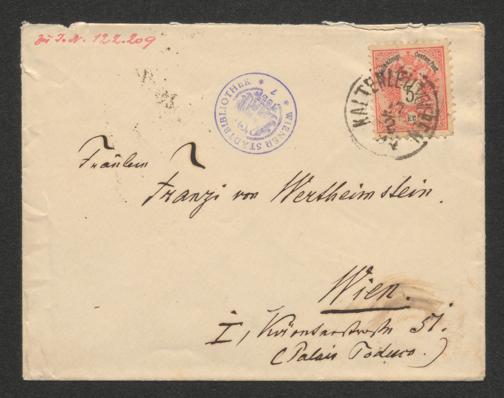 zu I. N. 122.209
WIENER STADTBIBLIOTHEK
KALTENLEUTGEBEN
5
Fräulein
Franzi von Wertheimstein.
Wien.
I, Kärntnerstraße 51.
(Palais Todesco.)